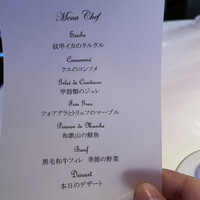 Menu Chef
Seiche
紋甲イカのタルタル
Consommé
クエのコンソメ
Gelée de Crustacés
甲殻類のジュレ
Foie Gras
フォアグラとトリュフのマーブル
Poisson de Marche
和歌山の鮮魚
Bœuf
黒毛和牛フィレ 季節の野菜
Dessert
本日のデザート